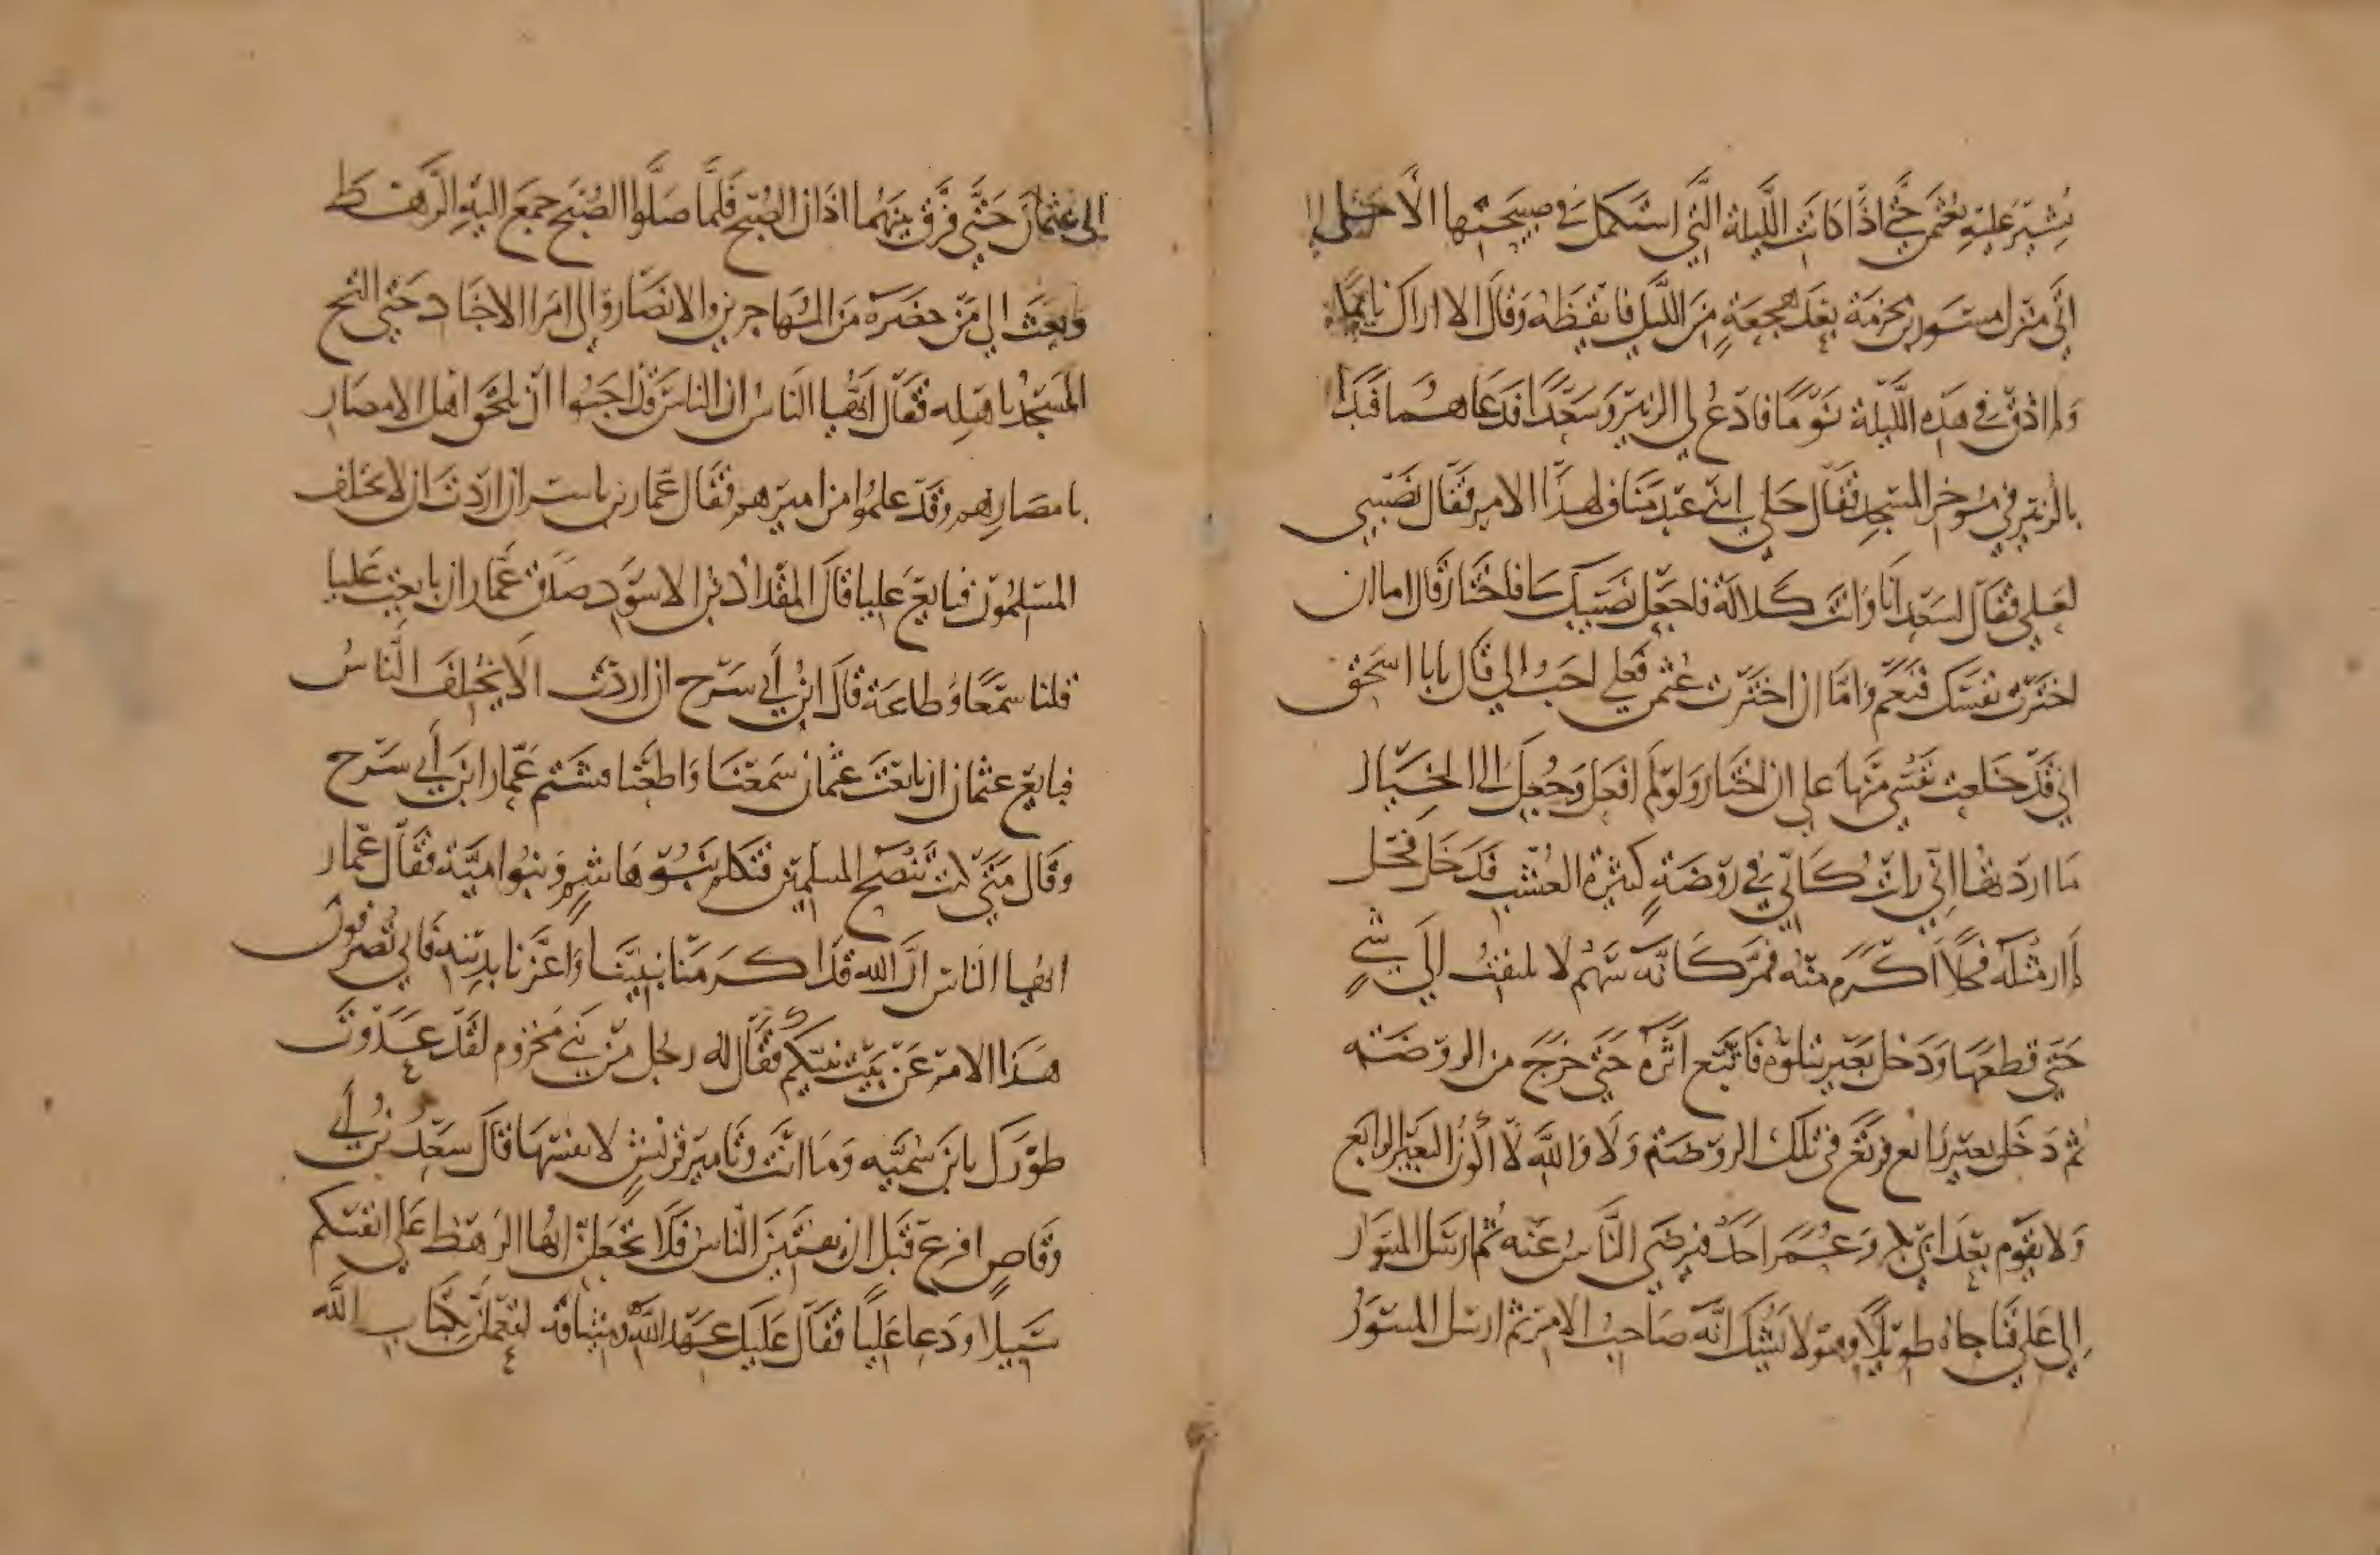 يُشِيرُ عَلَيْهِ بعُثمن حَتَّى اذَا كانَت اللَّيلة الَّتِي استَكمل فِي صبِيحَتها الاجَل
اتَى مَنزل مِسْوَر بن مَخرَمَة بَعدَ هَجعَةٍ مِنَ اللَّيل فايقَظَه وَقالَ الا اراك نايمًا
وَلم اذُق في هَذِه اللَّيلة نَومًا فادعُ لي الزبير وَسَعدًا فدَعَاهُما فبَدَا
بالزبير في مُوخر المسجِد فقَال خَلِّ ابنَي عَبد مَنَاف لهذا الامر فقَال نَصيبِي
لعَلي فقَال لسَعدٍ انَا وَانتَ كَلالَة فاجعَل نَصِيبَك لي فاختَار قَال اما ان
اختَرت نفسَك فنَعَم وَامَّا ان اختَرت عثمن فعَلي احَبُّ الي قَال يابا اسحق
اني قَد خَلعت نَفسي مِنهَا علي ان اختَار وَلو لَم افعَل وَجُعِلَ الي الخيَار
مَا اردتها اني رايت كَاني في رَوضَةٍ كثيرة العُشب فدَخَل فحل
لم ار مثلَه فحلًا اكرَم مِنه فمرَّ كانَّه سَهم لا يلتفت الَي شَيءٍ
حَتي قطعَهَا وَدَخل بَعير يتلوه فاتبَع اثَرَه حَتي خرَج من الروضَه
ثم دَخَل بعير رابع فرتَع في تلك الروضَة وَلَا وَاللّهِ لا اكُون البَعير الرابع
وَلا يقوم بعدَ ابي بكر وَعُمَر احَد فيرضَي النَّاسُ عَنه ثُم ارسَل المسوَر
الي عَلي فناجاه طويلًا وهو لا يَشُك انَّه صَاحِبُ الامر ثم ارسَل المسوَر
الي عثمانَ حَتَّي فرَّق بينَهُما اذَان الصُبح فلمَّا صَلّوا الصُبح جمَع اليهِ الرَهط
وَبعَثَ الي مَن حضرَه مَن المُهَاجرين والانصَار وَالي امَرا الاجنَاد حَتي التج
المَسجدُ باهلِه فقَال ايّهَا النَاسُ ان الناسَ قد احَبّوا ان يلحَق اهل الامصَار
بامصَارهم وقَد علموا من اميرهم فقَال عَمّار بن ياسر ان اردتَ ان لا يختلف
المسلمُون فبايع عَليا قالَ المقدادُ بنُ الاسوَد صَدَق عَمّار ان بايعت عَليا
قلنا سَمعًا وَطاعَة قالَ ابنُ ابي سَرح ان اردتَ الا يختلفَ النَّاسُ
فبايع عثمان ان بايعتَ عثمان سَمعنَا وَاطعنا فشَتم عَمّار ابنَ ابي سَرح
وَقال مَتي كنت تَنصَح المسلمين فتكلم بَنُو هَاشم وَبنوا اميَّة فقَال عَمّار
ايها الناس انَّ الله قد اكرَمنا بنبيِّنا وَاعَزَّنا بدِينه فاني تُصرفون
هَذا الامرَ عَن بَيت نبيّكم فقَال له رجُل مِن بَني مَخزوم لقَد عَدَوتَ
طَورَك يا بنَ سُميّه وَمَا انتَ وتَامير قريشٍ لانفسِهَا قالَ سَعدُ بنُ ابي
وَقاصٍ افرع قَبل ان يفتتنَ الناسُ فَلا تجعَلن ايها الرَهط علي انفسكم
سَبيلا ودَعا عَليًا فقَال عَليك عَهد اللّه وميثاقه لتعملن بكتَاب الله